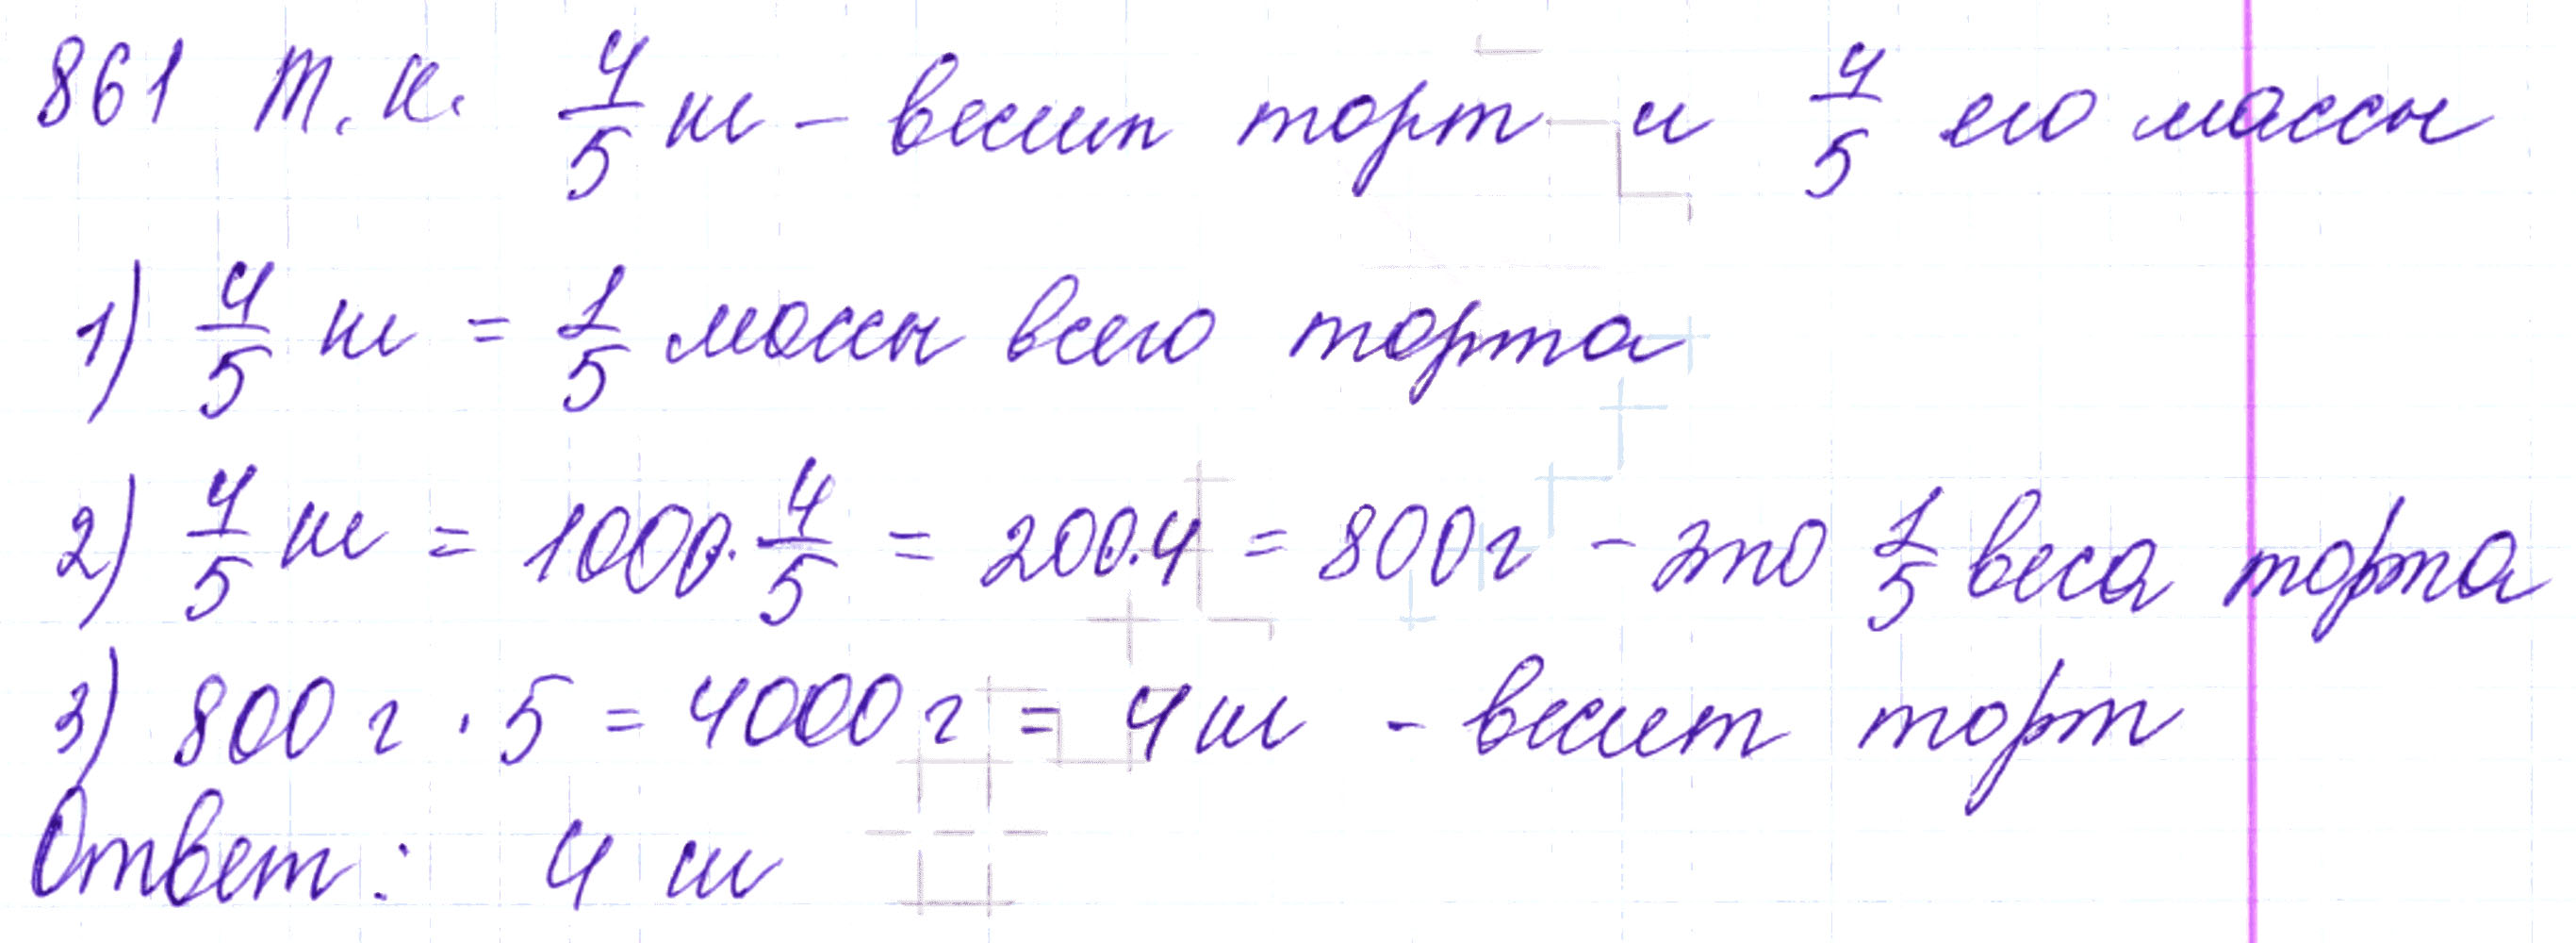 861 Т.к. 4/5 кг – весит торт и 4/5 его массы
1) 4/5 кг = 1/5 массы всего торта
2) 4/5 кг = 1000 · 4/5 = 200 · 4 = 800 г – это 1/5 веса торта
3) 800 г · 5 = 4000 г = 4 кг – весит торт
Ответ: 4 кг